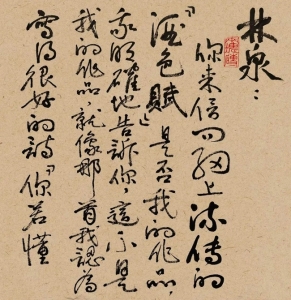 林泉：
你来信问网上流传的
『酒色賦』是否我的作品,
我明確地告訴你這不是
我的作品,就像那首我認為
寫得很好的詩『你若懂